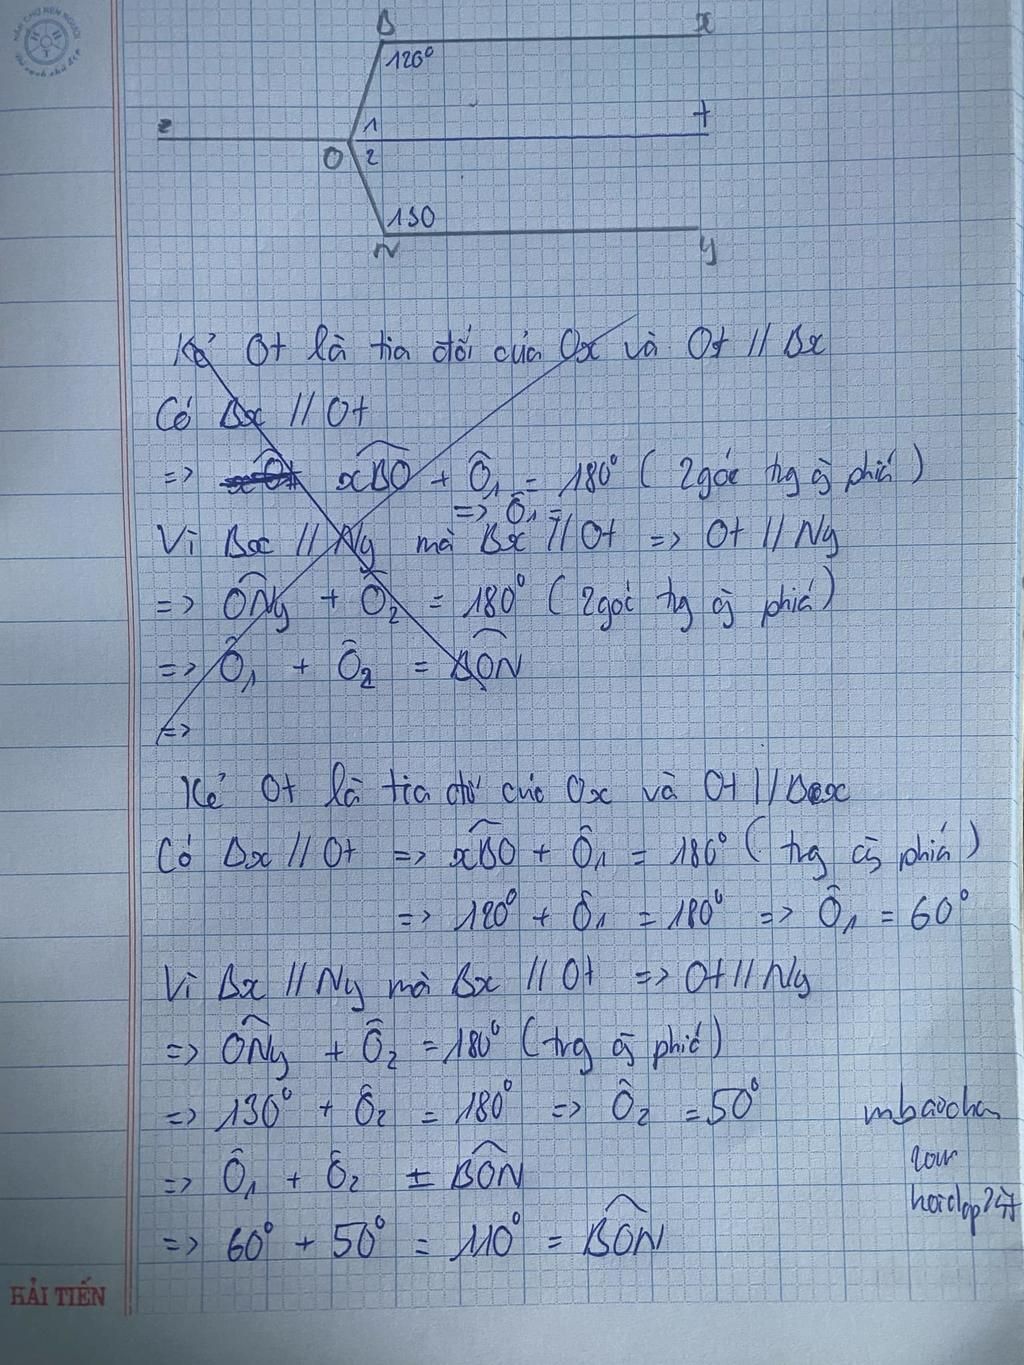 B x
120°
z 1 t
O 2
130
N y
Kẻ Ot là tia đối của Ox và Ot // Bx
Có Bx // Ot
=> xBO + Ô₁ = 180° ( 2 góc trg cg phía )
=> Ô₁ =
Vì Bx // Ny mà Bx // Ot => Ot // Ny
=> ONy + Ô₂ = 180° ( 2 góc trg cg phía )
=> Ô₁ + Ô₂ = BON
=>
Kẻ Ot là tia đối của Ox và Ot // Bx
Có Bx // Ot => xBO + Ô₁ = 180° ( trg cg phía )
=> 120° + Ô₁ = 180° => Ô₁ = 60°
Vì Bx // Ny mà Bx // Ot => Ot // Ny
=> ONy + Ô₂ = 180° ( trg cg phía )
=> 130° + Ô₂ = 180° => Ô₂ = 50°
=> Ô₁ + Ô₂ = BON
=> 60° + 50° = 110° = BON
HẢI TIẾN